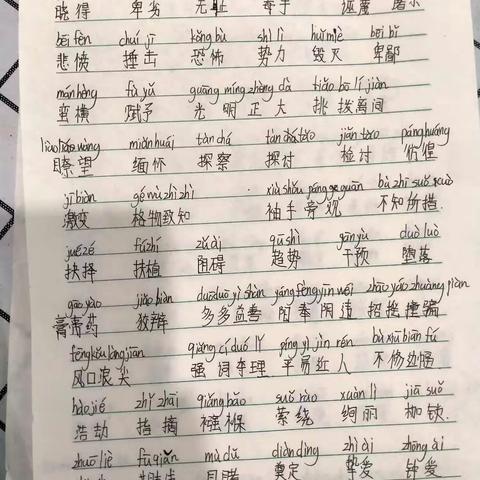 晓得 卑劣 无
bēi fèn chuí jī kǒng bù shì lì huǐ miè bēi bǐ
悲愤 捶击 恐怖 势力 毁灭 卑鄙
mán hèng fù yǔ guāng míng zhèng dà tiǎo bō lí jiàn
蛮横 赋予 光明正大 挑拨离间
liào wàng miǎn huái tàn chá tàn tǎo jiǎn tǎo páng huáng
瞭望 缅怀 探察 探讨 检讨 彷徨
jī biàn gé wù zhì zhī xiù shǒu páng guān bù zhī suǒ cuò
激变 格物致知 袖手旁观 不知所措
jué zé fú zhí zǔ ài qū shì gān yù duò luò
抉择 扶植 阻碍 趋势 干预 堕落
gāo yào jiǎo biàn duō duō yì shàn yáng fèng yīn wéi zhāo yáo zhuàng piàn
膏药 狡辩 多多益善 阳奉阴违 招摇撞骗
fēng kǒu làng jiān qiǎng cí duó lǐ píng yì jìn rén bù xiū biān fú
风口浪尖 强词夺理 平易近人 不修边幅
hào jié zhǐ zhāi qiǎng bǎo suǒ rào xuàn lì jiā suǒ
浩劫 指摘 襁褓 萦绕 绚丽 枷锁
zhuō liè fú qiǎn mù dǔ diàn dìng zhì ài zhōng ài
目睹 奠定 挚爱 钟爱